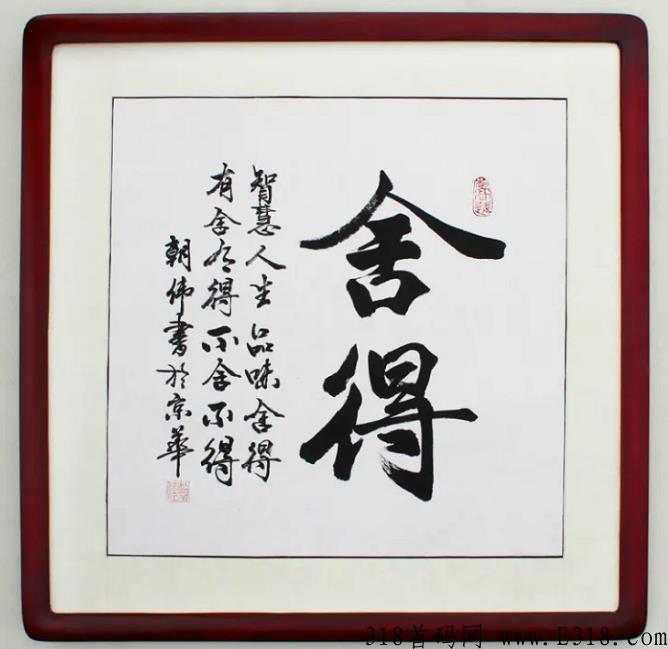 舍得
智慧人生品味舍得
有舍有得不舍不得
朝伟書於京華
318首码网 www.E318.com